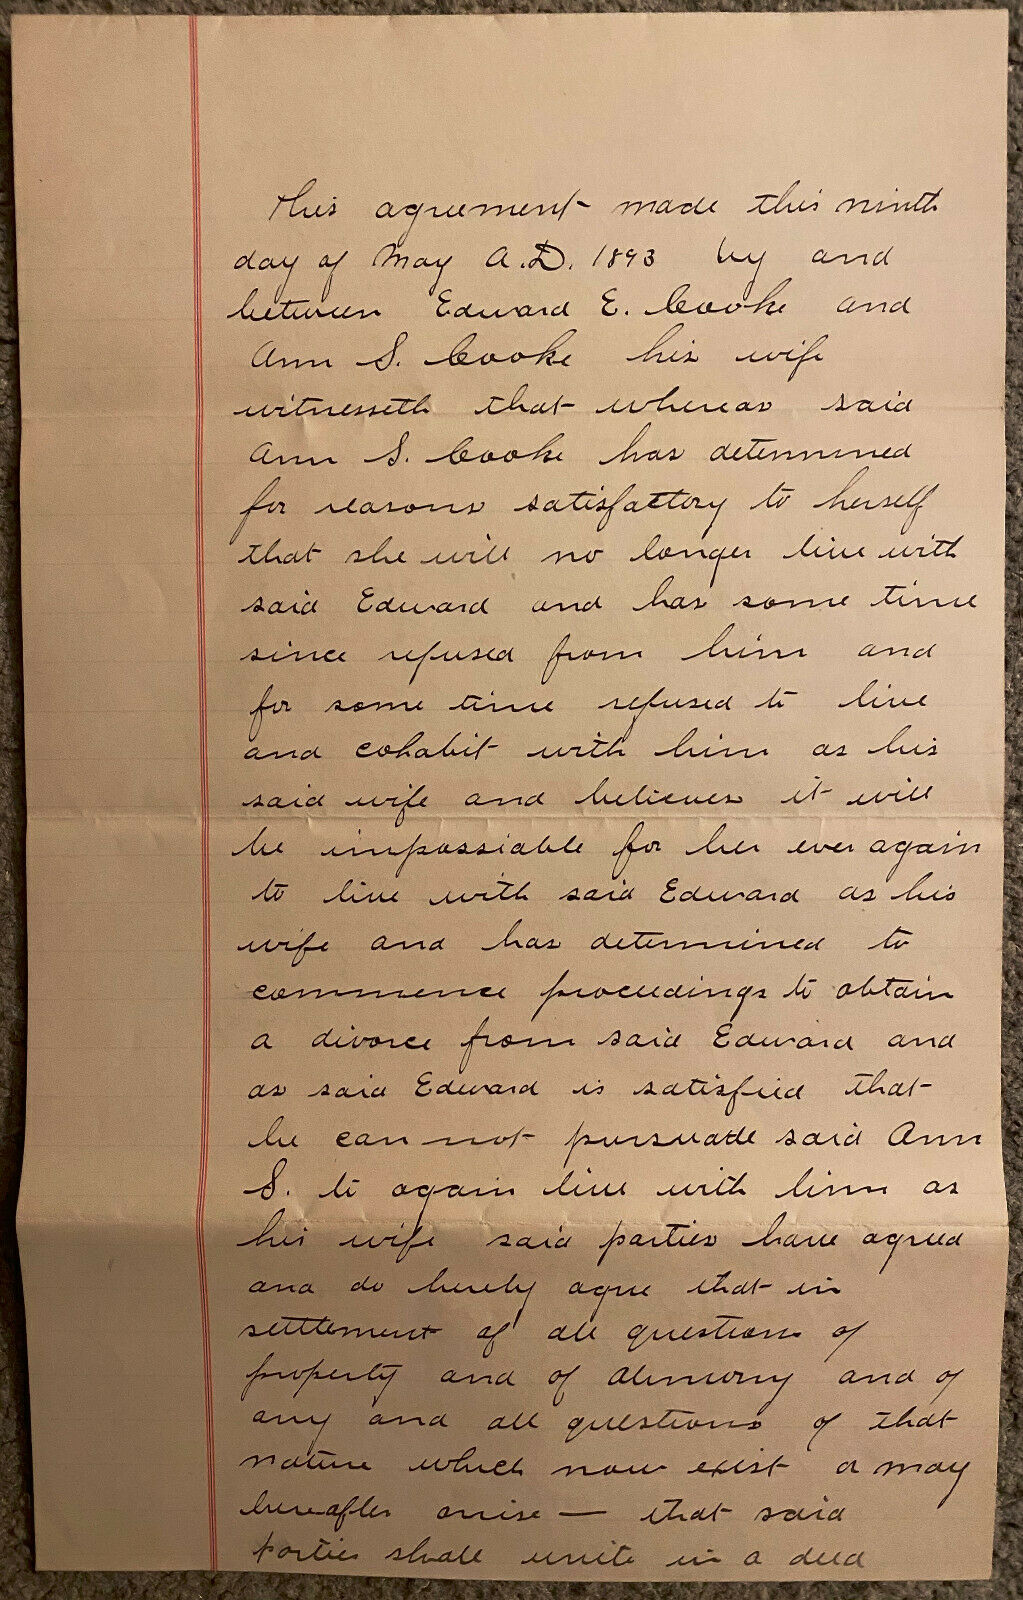 This agreement made this ninth
day of May A.D. 1893 by and
between Edward E. Cooke and
Ann S. Cooke his wife
witnesseth that whereas said
Ann S. Cooke has determined
for reasons satisfactory to herself
that she will no longer live with
said Edward and has some time
since refused from him and
for some time refused to live
and cohabit with him as his
said wife and believes it will
be impossiable for her ever again
to live with said Edward as his
wife and has determined to
commence proceedings to obtain
a divorce from said Edward and
as said Edward is satisfied that
he can not pursuade said Ann
S. to again live with him as
his wife said parties have agreed
and do hereby agree that in
settlement of all questions of
property and of alimony and of
any and all questions of that
nature which now exist or may
hereafter arise — that said
parties shall unite in a deed